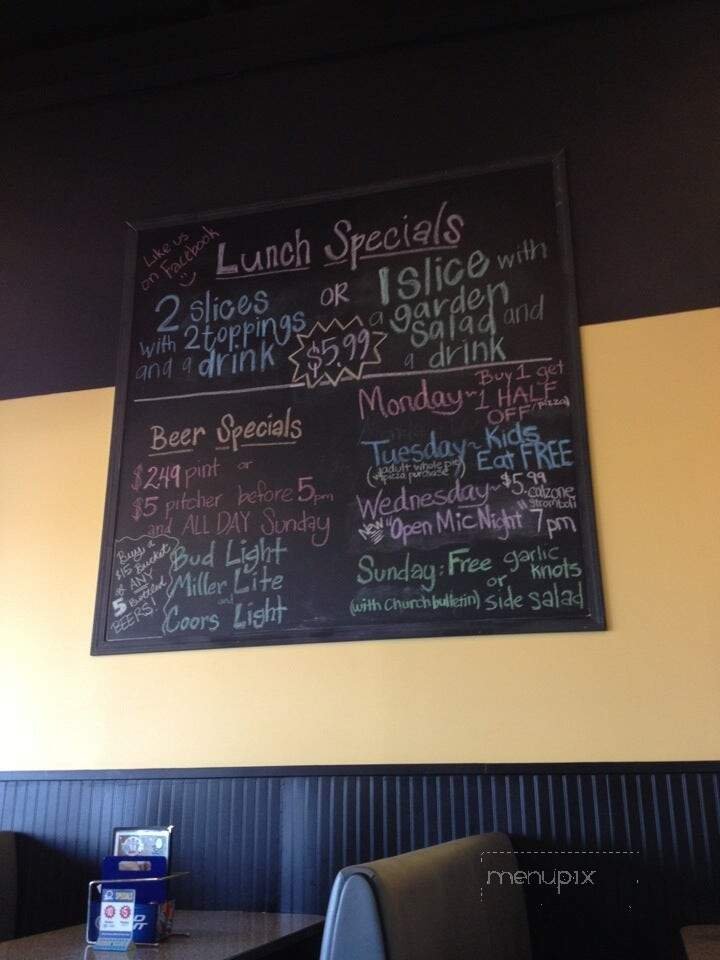 Like us
on Facebook
Lunch Specials
2 slices
with 2 toppings
and a drink
OR
$5.99
1 slice with
a garden
salad and
a drink
Beer Specials
$2.49 pint or
$5 pitcher before 5pm
and ALL DAY Sunday
Buy a
$15 Bucket
of ANY
5 Bottled
BEERS!
Bud Light
Miller Lite
and
Coors Light
Monday~ Buy 1 get
1 HALF
OFF (pizza)
Tuesday~ Kids
Eat FREE
(adult whole pie
pizza purchase)
Wednesday~ $5.99
calzone
stromboli
NEW "Open Mic Night" 7pm
Sunday: Free garlic
knots
or
(with Church bulletin) side salad
SPECIALS
menupix